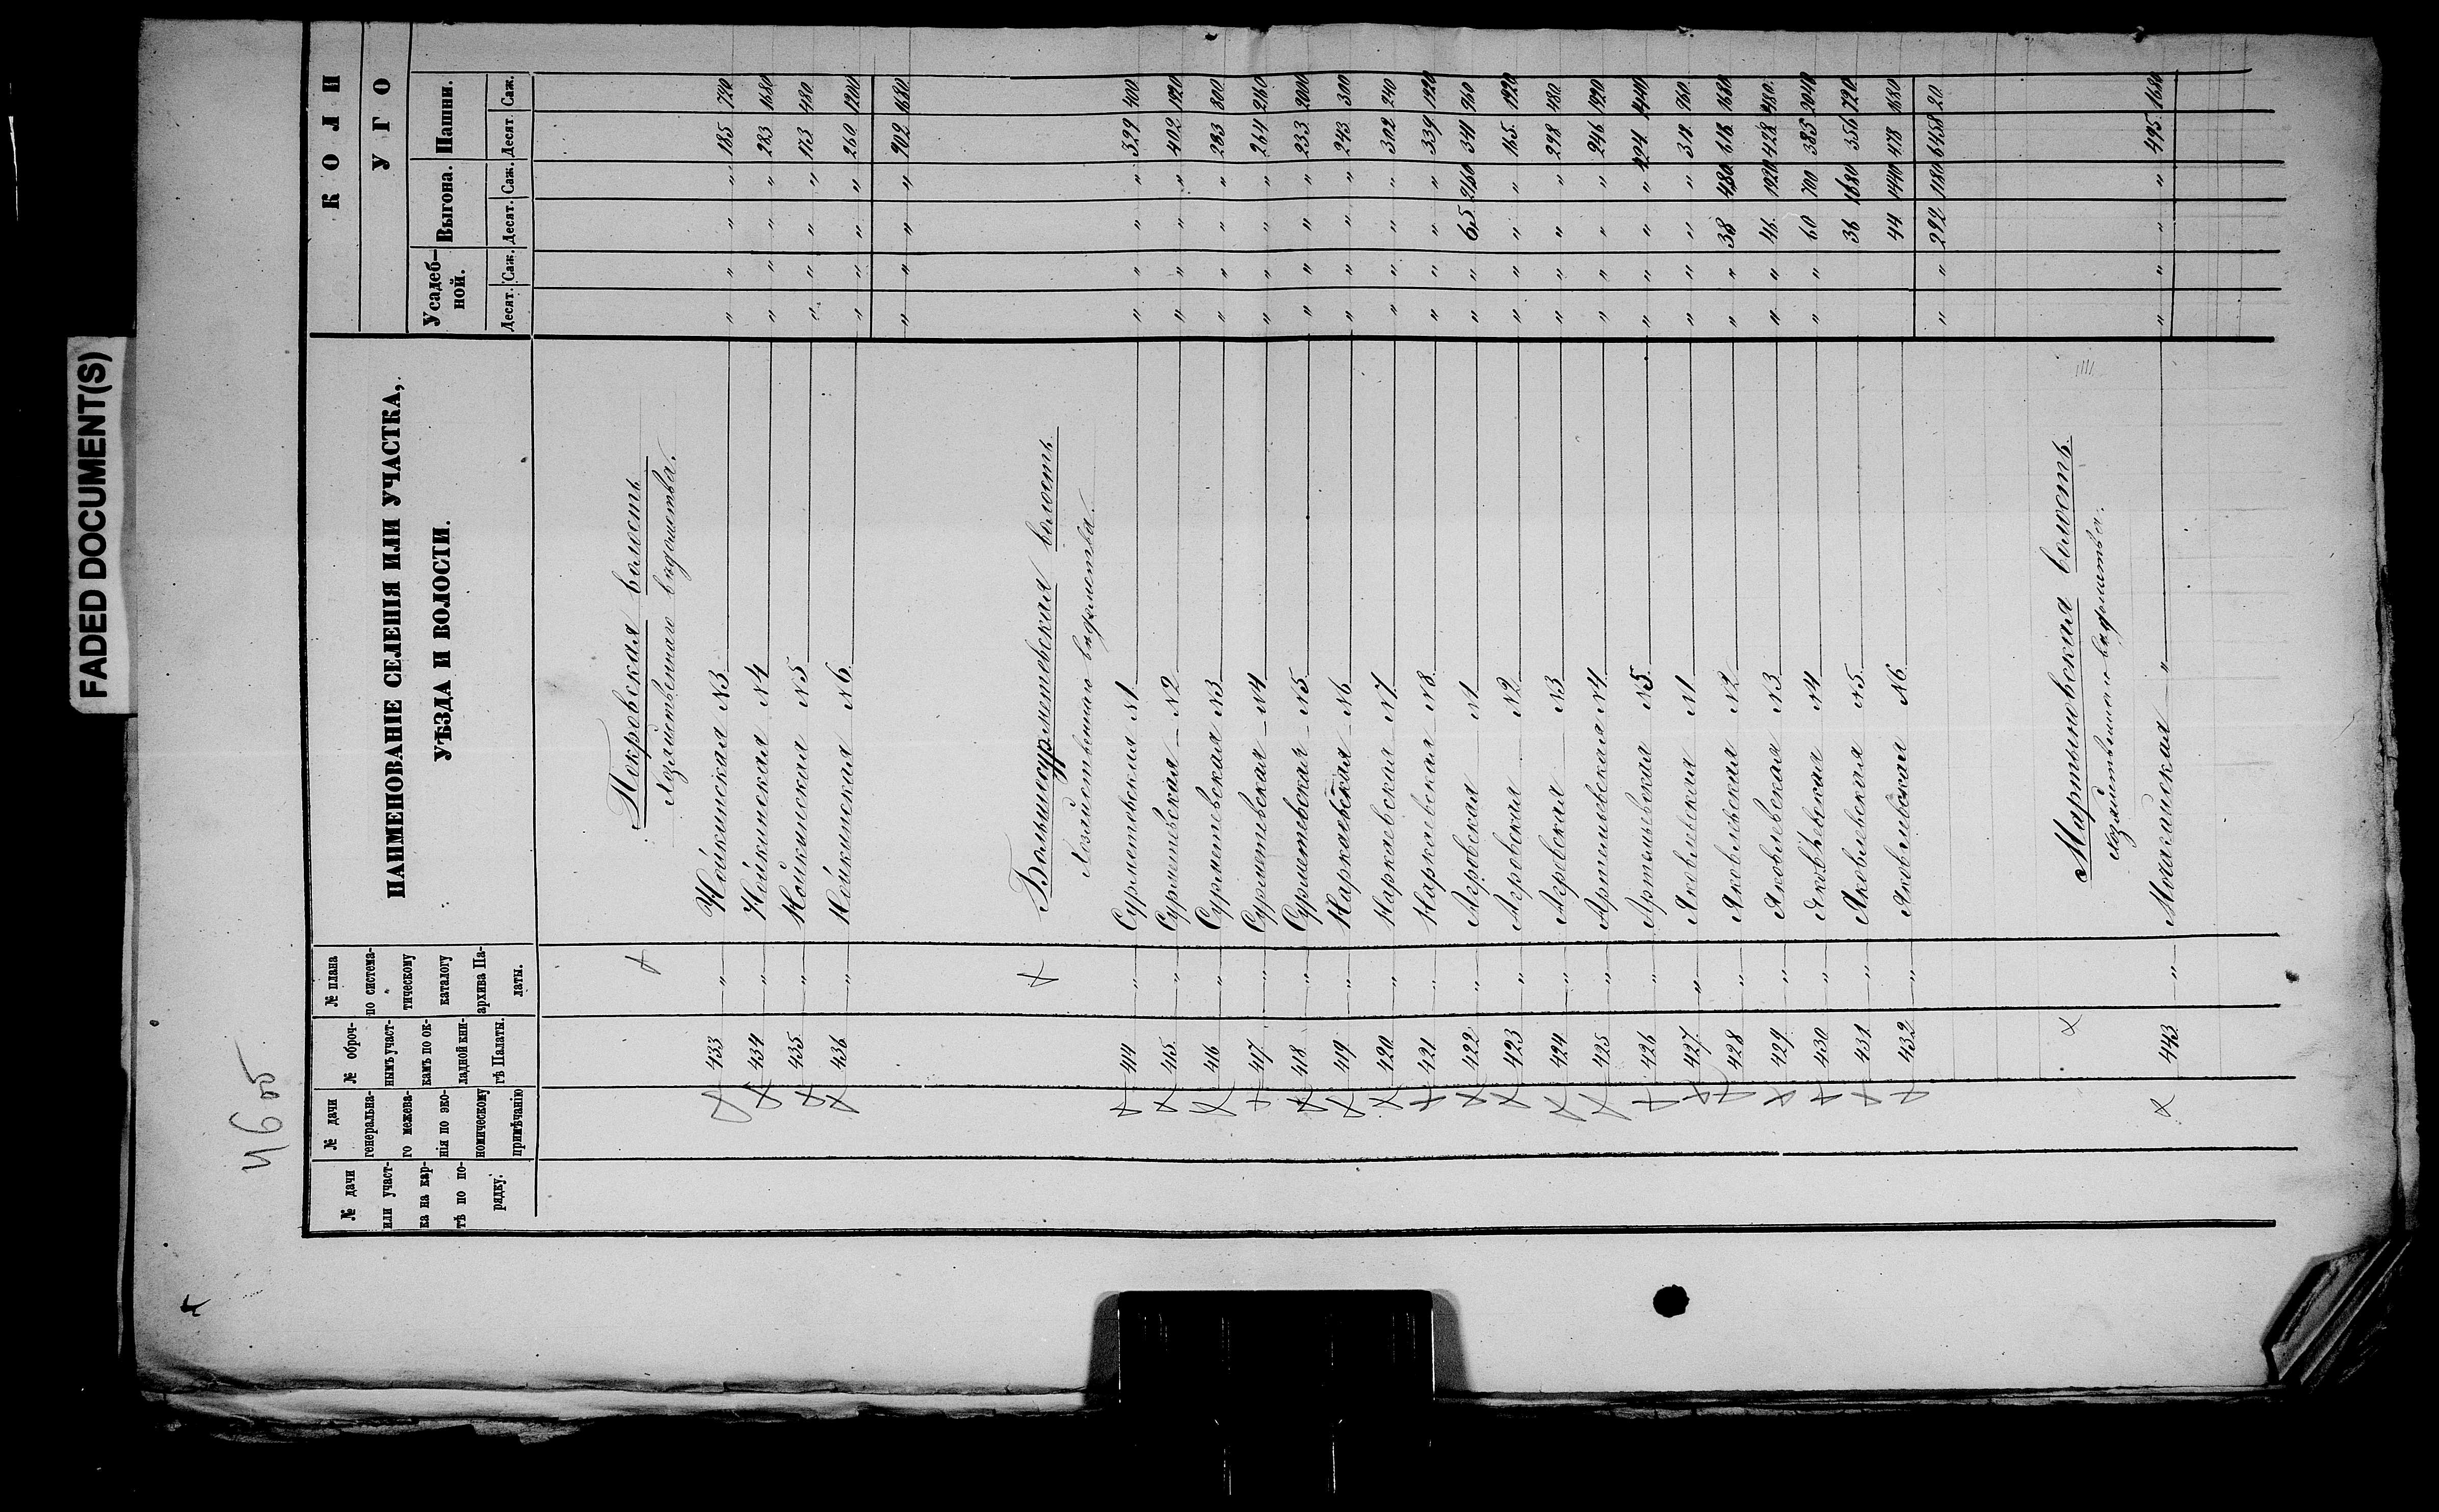 FADED DOCUMENT(S)
46 об
№ дачи или участка на картѣ по порядку.
№ дачи генеральнаго межеванія по экономическому примѣчанію
№ оброчнымъ участкамъ по окладной книгѣ Палаты.
№ плана по систематическому каталогу архива Палаты.
НАИМЕНОВАНІЕ СЕЛЕНІЯ ИЛИ УЧАСТКА,
УѢЗДА И ВОЛОСТИ.
КОЛИ
УГО
Усадебной. Выгона. Пашни.
Десят. Саж. Десят. Саж. Десят. Саж.
Покровская волость
Хозяйственнаго вѣдомства.
433 " Нойкинская №3 " " " " 185 720
434 " Нойкинская №4 " " " " 283 1680
435 " Нойкинская №5 " " " " 173 480
436 " Нойкинская №6 " " " " 260 1200
" " " " 902 1680
Большесурметевская волость
Хозяйственнаго вѣдомства.
414 " Сурметевская №1 " " " " 329 400
415 " Сурметевская №2 " " " " 402 1920
416 " Сурметевская №3 " " " " 283 800
417 " Сурметевская №4 " " " " 264 2160
418 " Сурметевская №5 " " " " 233 2000
419 " Наркаевская №6 " " " " 243 300
420 " Наркаевская №7 " " " " 302 240
421 " Наркаевская №8 " " " " 339 1920
422 " Агровская №1 " " 65 2160 341 960
423 " Агровская №2 " " " " 165 1920
424 " Агровская №3 " " " " 298 480
425 " Артемьевская №4 " " " " 246 1920
426 " Артемьевская №5 " " " " 494 1440
427 " Яковлевская №1 " " " " 318 960
428 " Яковлевская №2 " " 38 480 618 1680
429 " Яковлевская №3 " " 46 1920 428 480
430 " Яковлевская №4 " " 60 700 385 2040
431 " Яковлевская №5 36 1680 356 720
432 " Яковлевская №6 44 1440 478 1680
" " 292 1180 6458 20
Мартыновская волость
Хозяйственнаго вѣдомства.
443 " Можайская " " " " " 495 1680